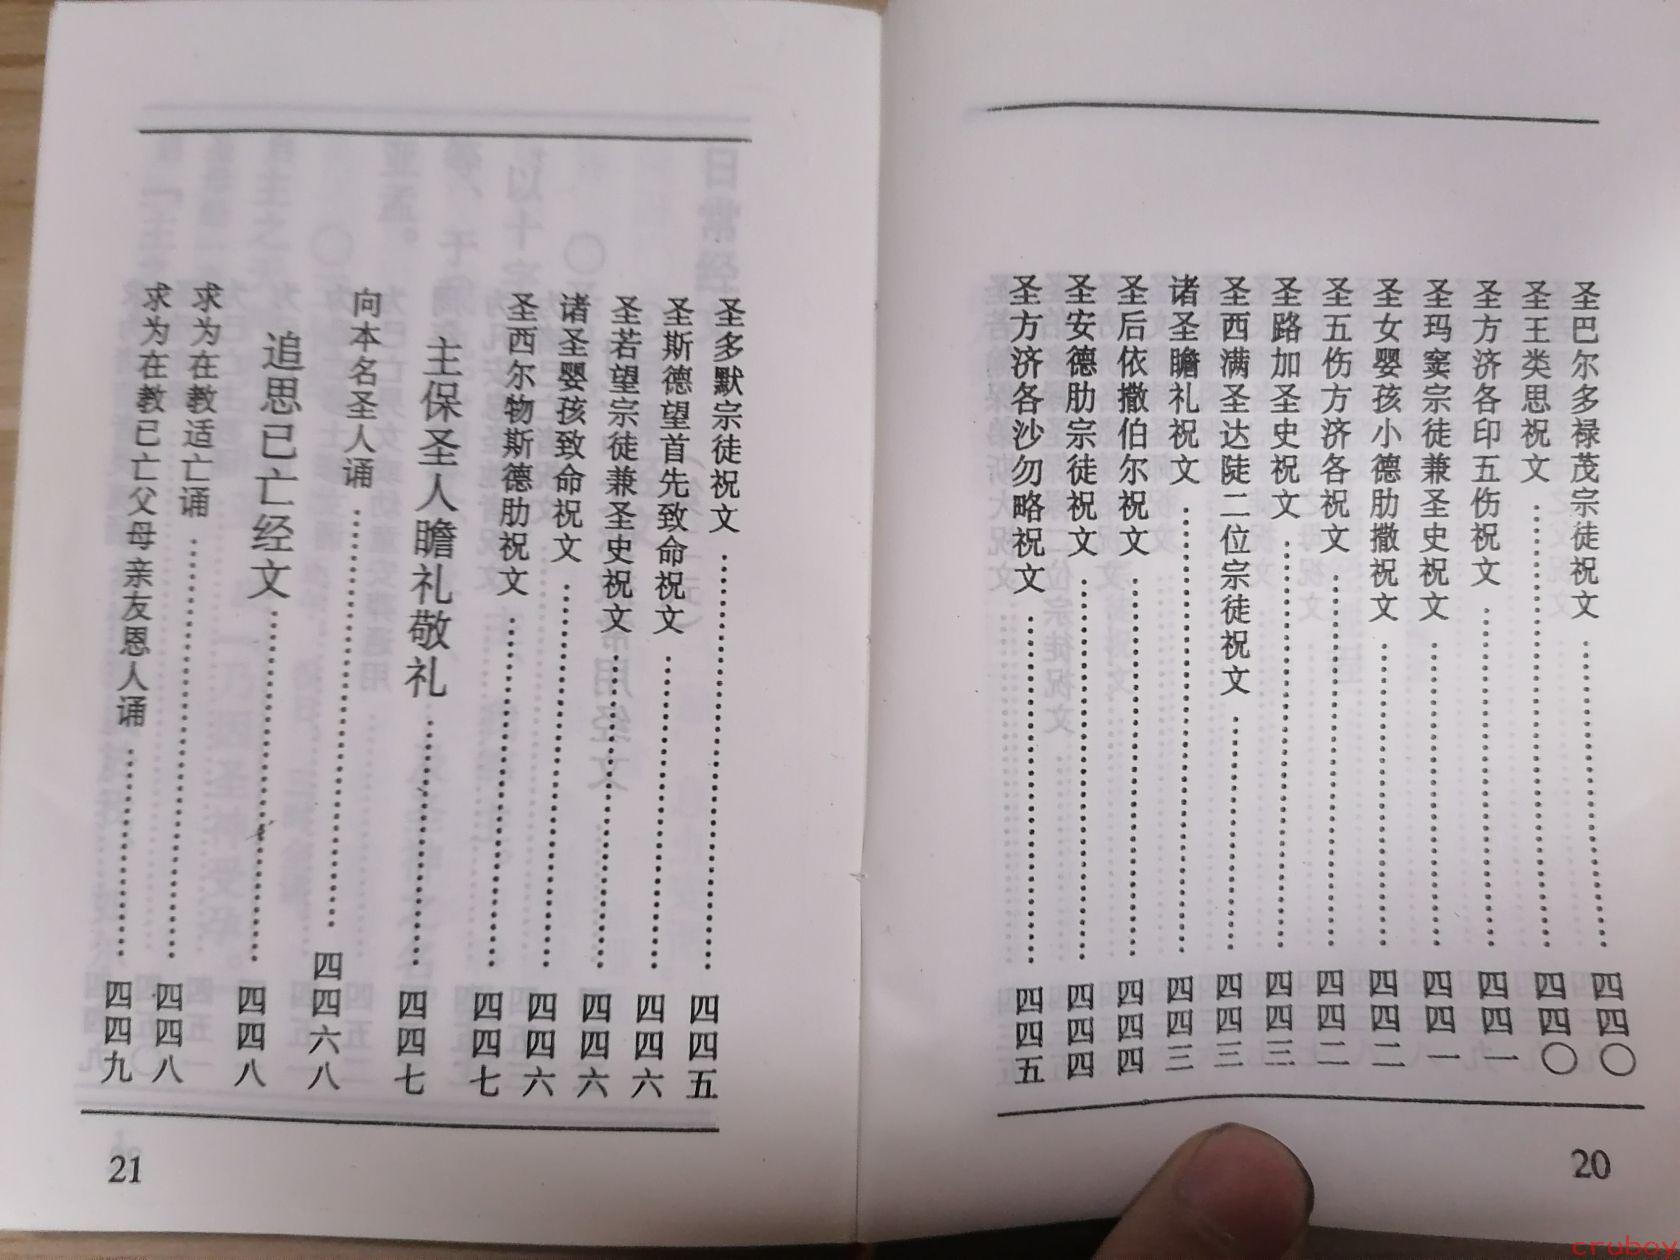 圣巴尔多禄茂宗徒祝文 四四〇
圣王类思祝文 四四〇
圣方济各印五伤祝文 四四一
圣玛窦宗徒兼圣史祝文 四四一
圣女婴孩小德肋撒祝文 四四二
圣五伤方济各祝文 四四二
圣路加圣史祝文 四四三
圣西满圣达陡二位宗徒祝文 四四三
诸圣瞻礼祝文 四四三
圣后依撒伯尔祝文 四四四
圣安德肋宗徒祝文 四四四
圣方济各沙勿略祝文 四四五
20
圣多默宗徒祝文 四四五
圣斯德望首先致命祝文 四四六
圣若望宗徒兼圣史祝文 四四六
诸圣婴孩致命祝文 四四六
圣西尔物斯德肋祝文 四四七
主保圣人瞻礼敬礼 四四七
向本名圣人诵 四四六八
追思已亡经文 四四八
求为在教适亡诵 四四八
求为在教已亡父母亲友恩人诵 四四九
21
cruboy